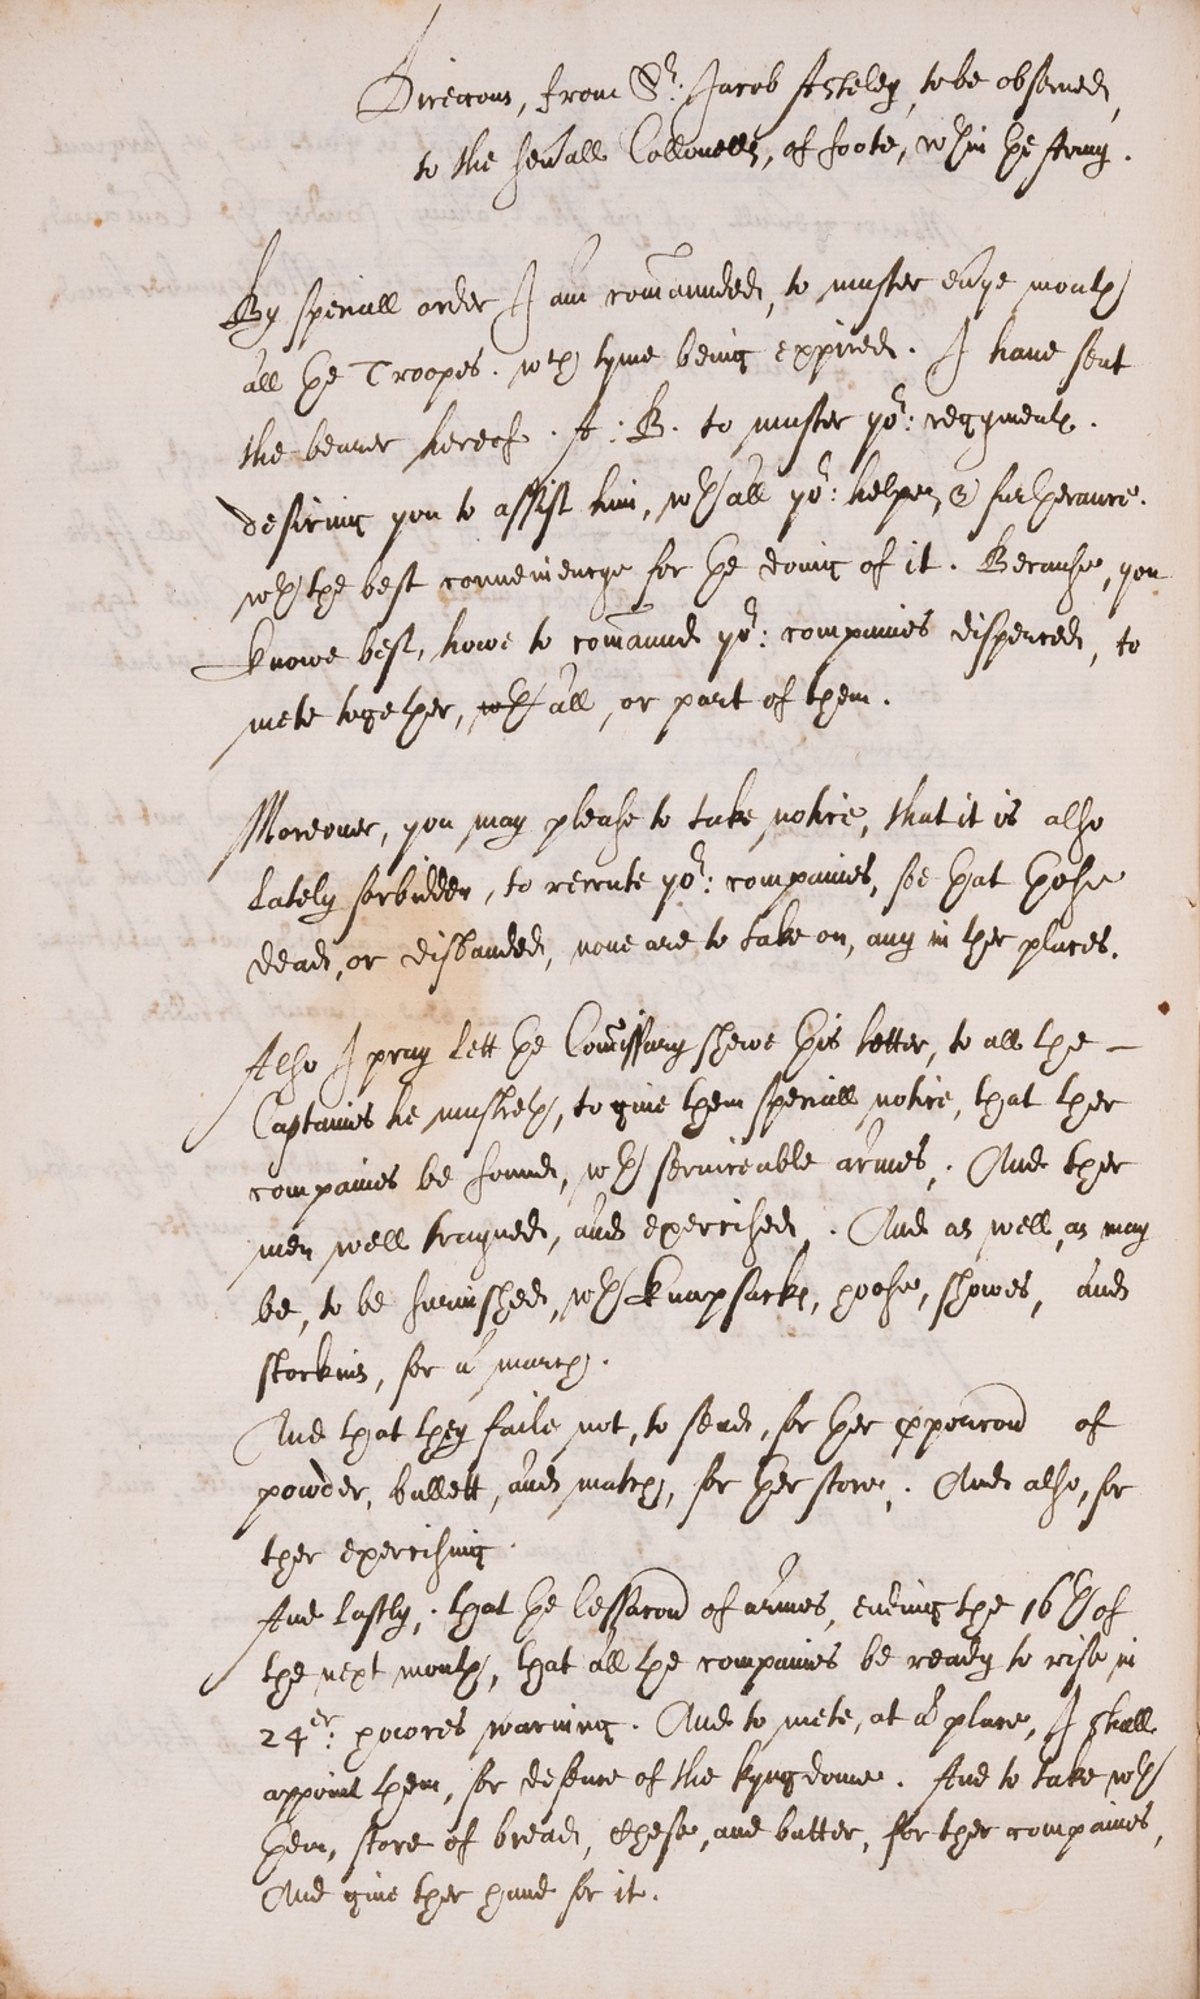 Direcons, from Sr: Jacob Asteley, to be observed,
to the sevall Collonells, of foote, wthin the Army.
By speciall order I am comaunded, to muster evrye month
all the Troopes. wch tyme being expired. I have sent
the bearer hereof. A: B. to muster yor: reggment.
desiring you to assist him, wth all yor: helpe, & furtherance.
wth the best conveniencye for the doing of it. Because, you
knowe best, howe to comaund yor: companies disperced, to
mete together, wth all, or part of them.
Moreover, you may please to take notice, that it is also
lately forbidden, to recrute yor: companies, soe that those
dead, or disbanded, none are to take on, any in ther places.
Also I pray lett the Comissary shewe this letter, to all the –
Captaines he musters, to give them speciall notice, that ther
companies be found, wth serviceable armes,. And ther
men well trayned, and exercised,. And as well, as may
be, to be furnished, wth knapsacks, hose, showes, and
stockins, for a march.
And that they faile not, to send, for ther pporcon of
powder, bullett, and match, for ther store,. And also, for
ther exercising.
And lastly,. that the Cessacon of armes, ending the 16th of
the next month, that all the companies be ready to rise in
24er: howres warning. And to mete, at a place, I shall
appoint them, for defence of the kyngdome. And to take wth
them, store of bread, chese, and butter, for ther companies,
And give ther hand for it.